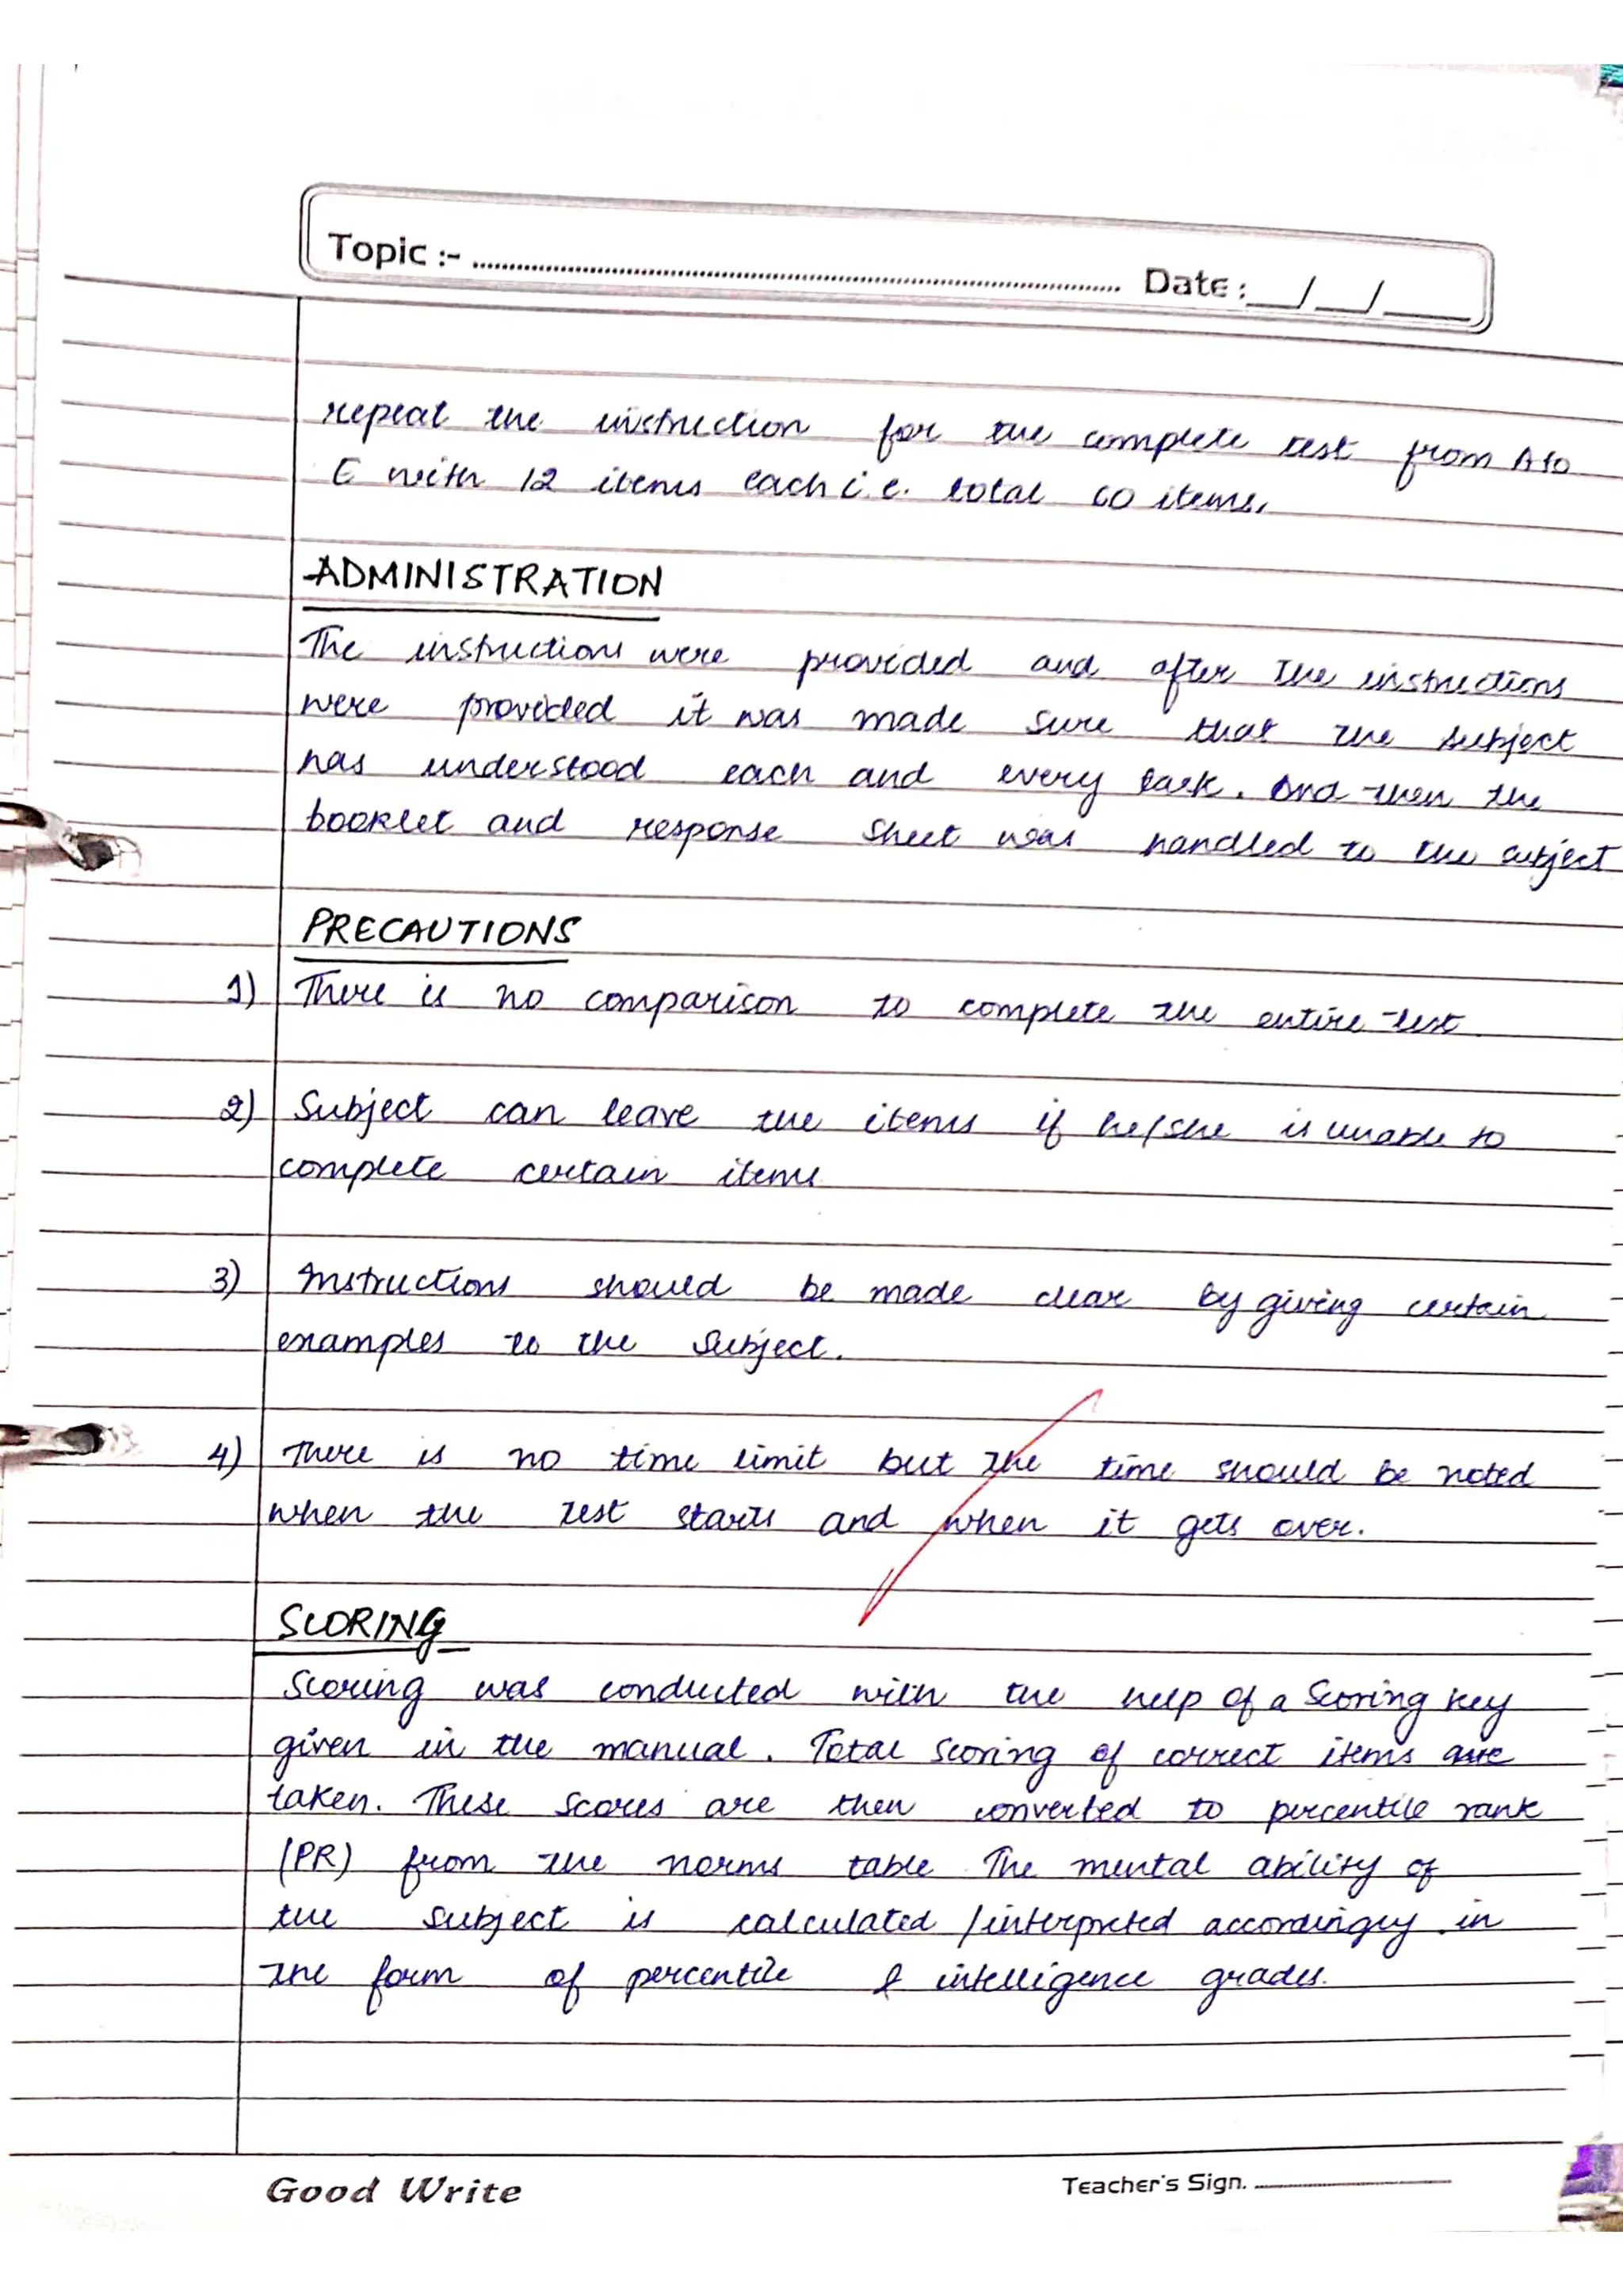 Topic :- Date : __/__/____
repeat the instruction for the complete test from A to
E with 12 items each i.e. total 60 items.
ADMINISTRATION
The instructions were provided and after the instructions
were provided it was made sure that the subject
has understood each and every task. And then the
booklet and response sheet was handled to the subject
PRECAUTIONS
1) There is no comparison to complete the entire test.
2) Subject can leave the items if he/she is unable to
complete certain items
3) Instructions should be made clear by giving certain
examples to the subject.
4) There is no time limit but the time should be noted
when the test starts and when it gets over.
SCORING
Scoring was conducted with the help of a scoring key
given in the manual. Total scoring of correct items are
taken. These scores are then converted to percentile rank
(PR) from the norms table The mental ability of
the subject is calculated /interpreted accordingly in
the form of percentile & intelligence grades.
Good Write Teacher's Sign.